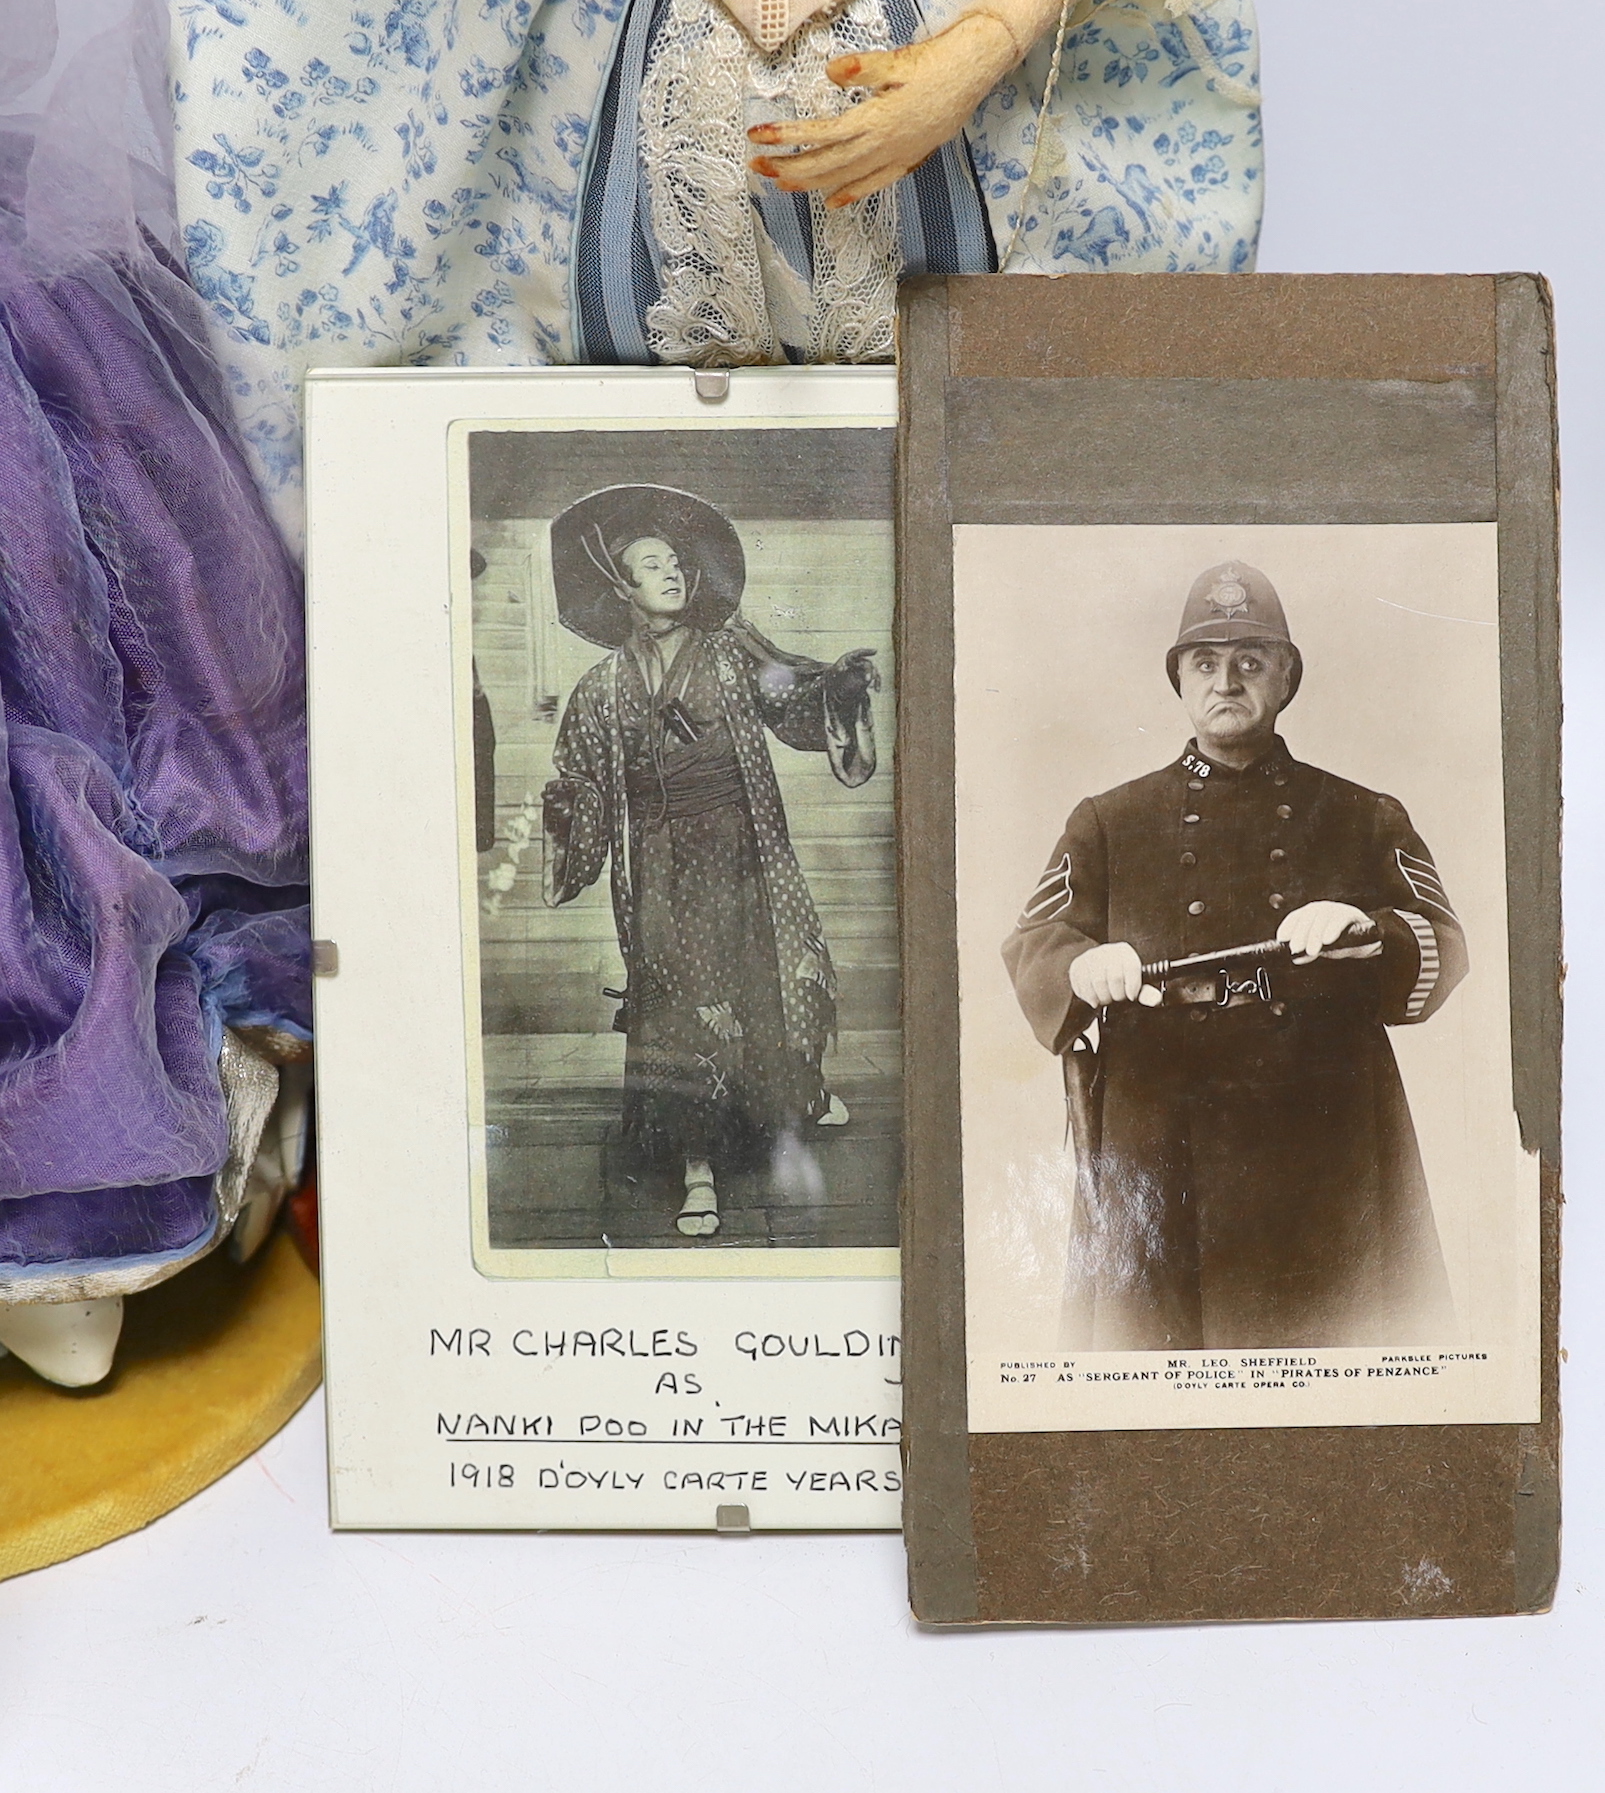 MR CHARLES
AS
NANKI POO IN THE
1918 D'OYLY CARTE YEARS
S.78
PUBLISHED BY MR. LEO. SHEFFIELD PARKSLEE PICTURES
No. 27 AS "SERGEANT OF POLICE" IN "PIRATES OF PENZANCE"
(D'OYLY CARTE OPERA CO.)